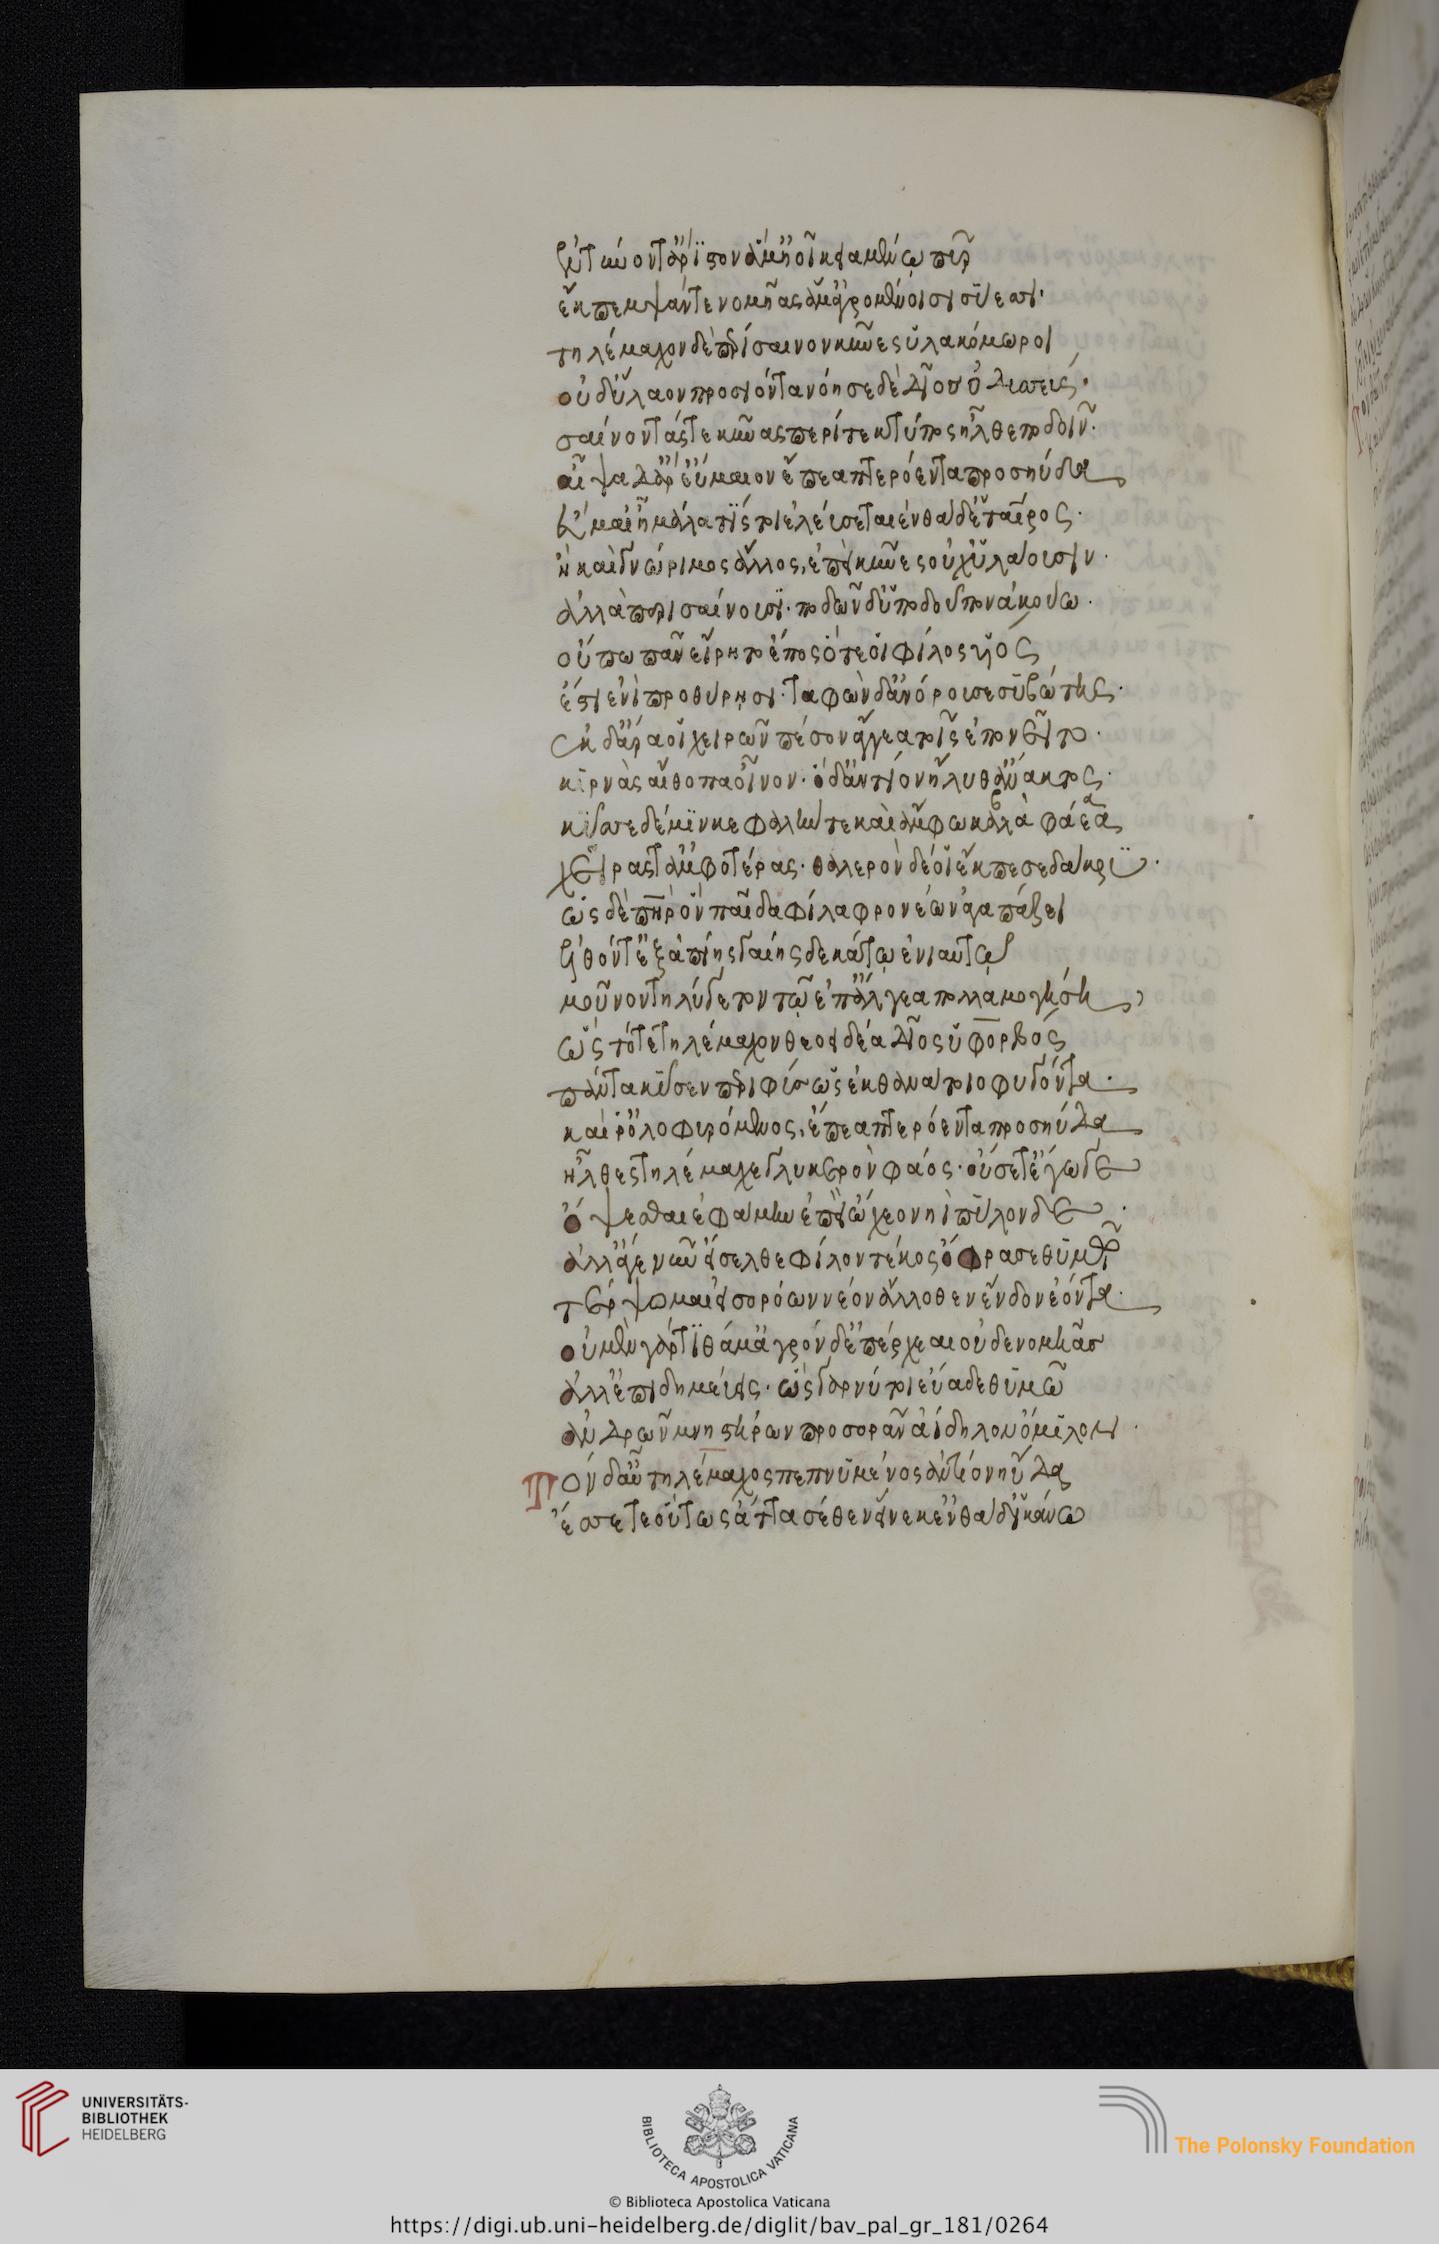 ἐντύνοντ' ἄριστον ἅμ' ἠοῖ κειαμένω πῦρ
ἔκπεμψάν τε νομῆας ἅμ' ἀγρομένοισι σύεσσι·
τηλέμαχον δὲ περίσαινον κύνες ὑλακόμωροι
οὐδ' ὕλαον προσιόντα νόησε δὲ δῖος ὀδυσσεύς·
σαίνοντάς τε κύνας περί τε κτύπος ἦλθε ποδοῖιν·
αἶψα δ' ἄρ' εὔμαιον ἔπεα πτερόεντα προσηύδα
εὔμαι' ἦ μάλα τίς τοι ἐλεύσεται ἐνθάδ' ἑταῖρος·
ἢ καὶ γνώριμος ἄλλος, ἐπεὶ κύνες οὐχ ὑλάουσιν·
ἀλλὰ περισαίνουσι· ποδῶν δ' ὕπο δοῦπον ἀκούω·
οὔπω πᾶν εἴρητο ἔπος ὅτε οἱ φίλος υἱός
ἔστη ἐνὶ προθύρῃσι· ταφὼν δ' ἀνόρουσε συβώτης·
ἐκ δ' ἄρα οἱ χειρῶν πέσον ἄγγεα τοῖς ἐπονεῖτο·
κιρνὰς αἴθοπα οἶνον· ὁ δ' ἀντίον ἤλυθ' ἄνακτος·
κύσσε δέ μιν κεφαλήν τε καὶ ἄμφω καλὰ φάεα
χεῖράς τ' ἀμφοτέρας· θαλερὸν δέ οἱ ἔκπεσε δάκρυ·
ὡς δὲ πατὴρ ὃν παῖδα φίλα φρονέων ἀγαπάζει
ἐλθόντ' ἐξ ἀπίης γαίης δεκάτῳ ἐνιαυτῷ
μοῦνον τηλύγετον τῷ ἐπ' ἄλγεα πολλὰ μογήσῃ
ὣς τότε τηλέμαχον θεοειδέα δῖος ὑφορβός
πάντα κύσεν περιφὺς ὡς ἐκ θανάτοιο φυγόντα·
καί ῥ' ὀλοφυρόμενος, ἔπεα πτερόεντα προσηύδα
ἦλθες τηλέμαχε γλυκερὸν φάος· οὔ σετ' ἐγώ γε
ὄψεσθαι ἐφάμην ἐπεὶ ᾤχεο νηὶ πύλονδε·
ἀλλ' ἄγε νῦν εἴσελθε φίλον τέκος ὄφρα σε θυμῷ
τέρψομαι εἰσορόων νέον ἄλλοθεν ἔνδον ἐόντα·
οὐ μὲν γάρ τι θάμ' ἀγρόνδ' ἐπέρχεαι οὐδὲ νομῆας
ἀλλ' ἐπιδημεύεις· ὣς γάρ νύ τοι εὔαδε θυμῷ
ἀνδρῶν μνηστήρων προσορᾶν ἀίδηλον ὅμιλον·
Τὸν δ' αὖ τηλέμαχος πεπνυμένος ἀντίον ηὔδα
ἔσσεται οὕτως ἄττα σέθεν εἵνεκ' ἐνθάδ' ἱκάνω
UNIVERSITÄTS-
BIBLIOTHEK
HEIDELBERG
BIBLIOTECA APOSTOLICA VATICANA
The Polonsky Foundation
© Biblioteca Apostolica Vaticana
https://digi.ub.uni-heidelberg.de/diglit/bav_pal_gr_181/0264